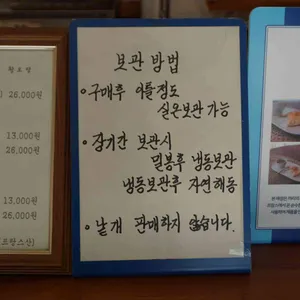 보관 방법
• 구매후 이틀정도
실온보관 가능
• 장기간 보관시
밀봉후 냉동보관
냉동보관후 자연해동
• 낱개 판매하지 않습니다.
26,000원
13,000원
26,000원
13,000원
26,000원